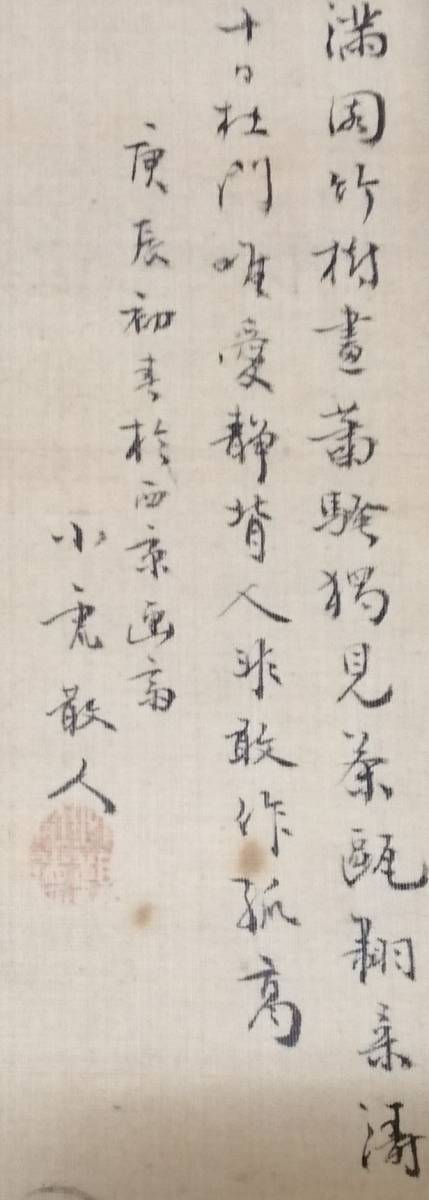 滿園竹樹晝蕭騷獨見茶甌翻素濤
十日杜門唯愛靜背人非敢作孤高
庚辰初春於西京画斎
小虎散人